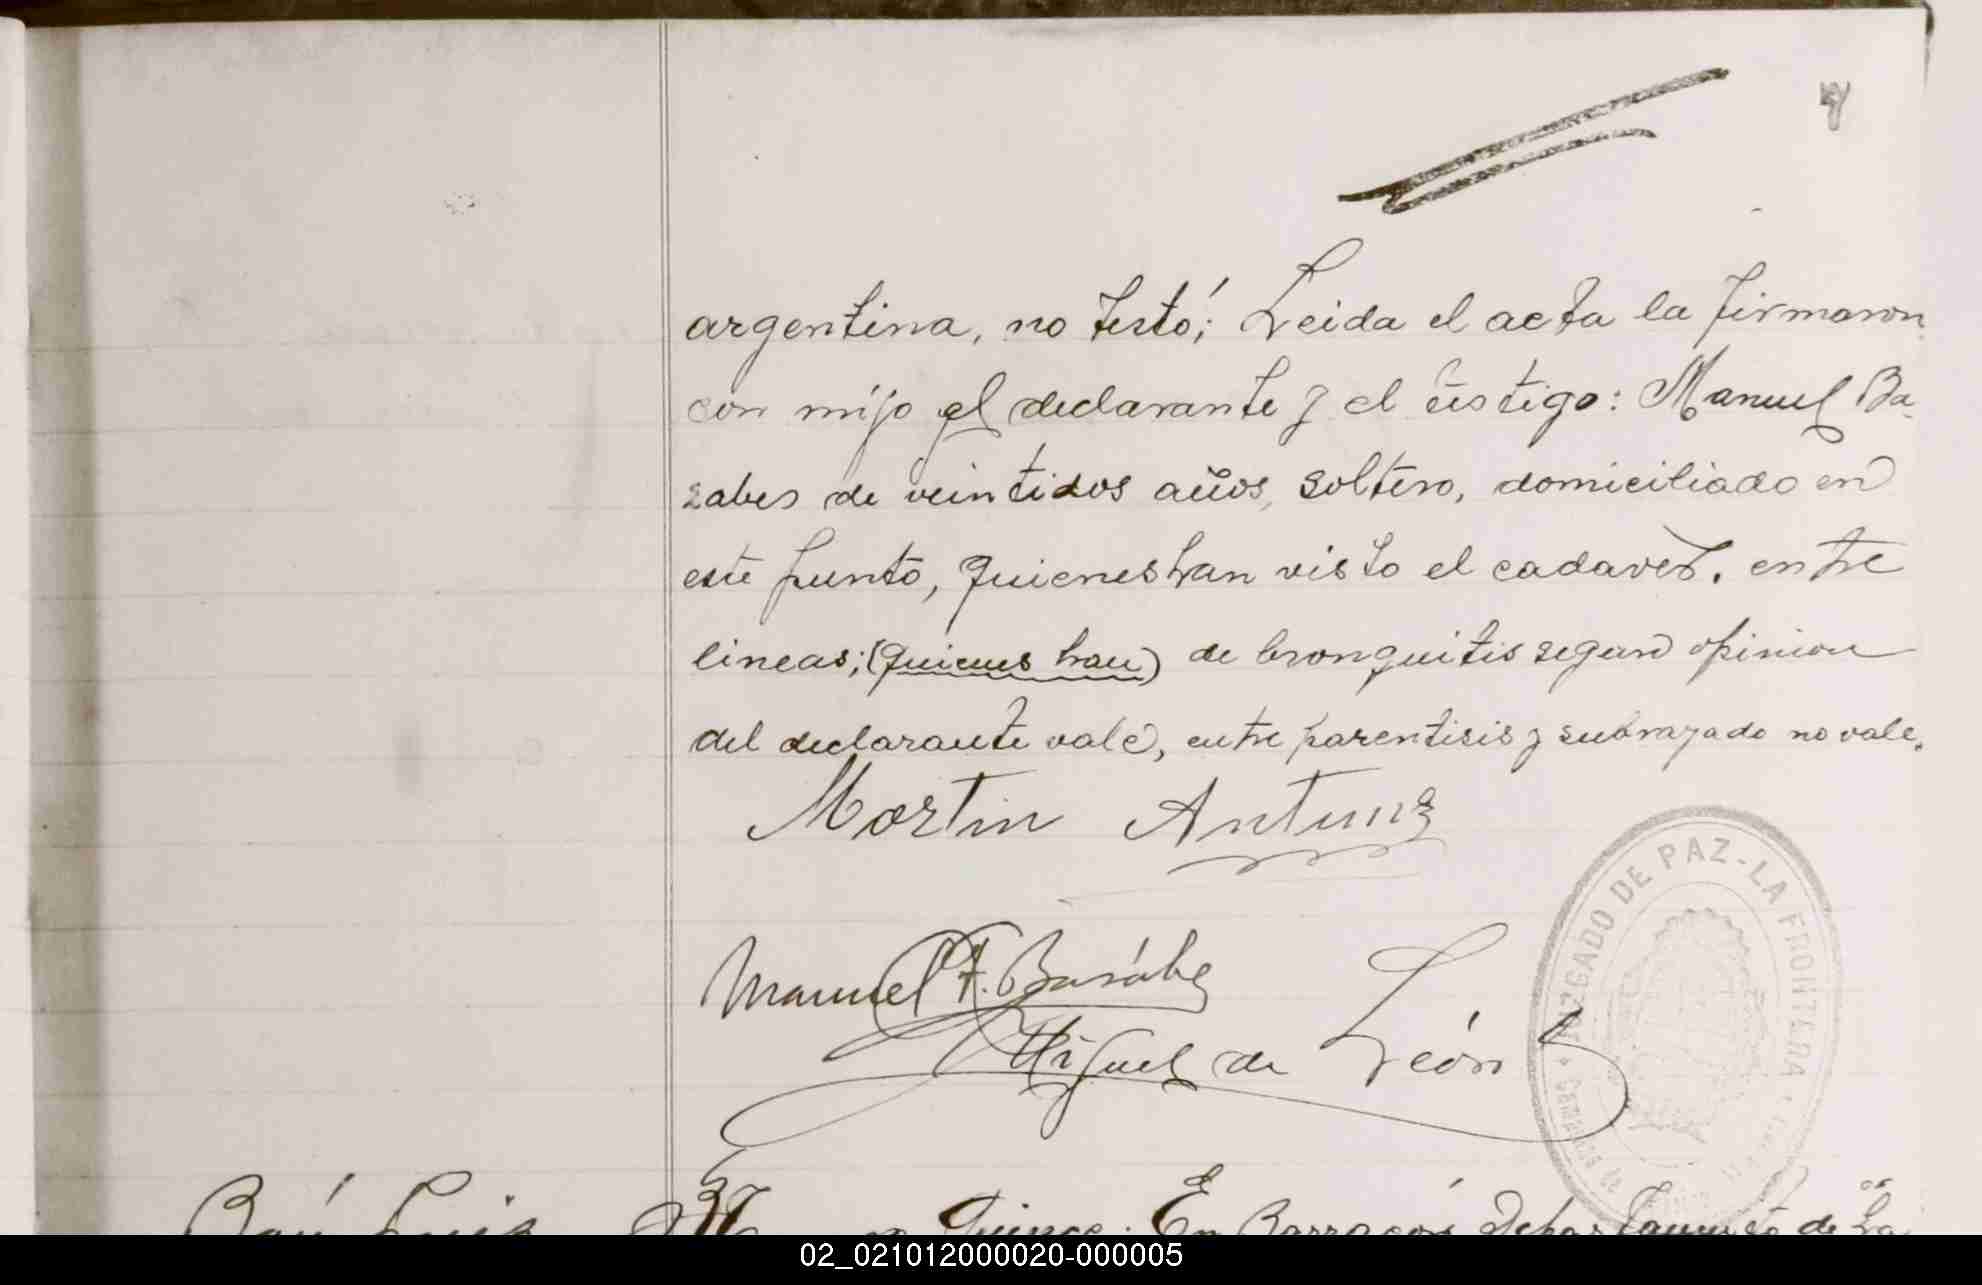 4
argentina, no testó; Leida el acta la firmaron
con mijo el declarante y el testigo: Manuel Ba-
zabes de veintidos años, soltero, domiciliado en
este punto, quienes han visto el cadaver. entre
lineas; (quienes han) de bronquitis segun opinion
del declarante vale, entre parentisis y subrayado no vale.
Martin Antunz
Manuel F. Basabe
Miguel de León
JUZGADO DE PAZ - LA FRONTERA
Luis
Quince. En Barracas Departamento de La
02_021012000020-000005